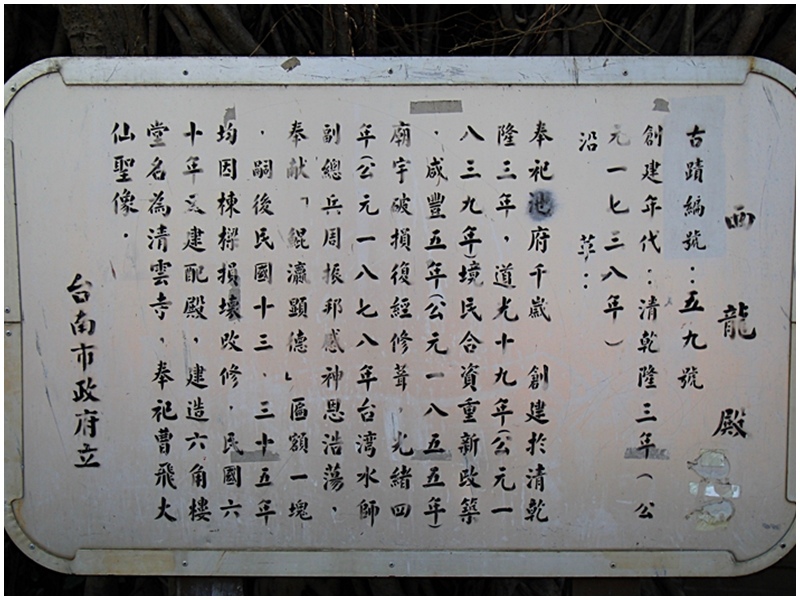 西龍殿
古蹟編號：五九號
創建年代：清乾隆三年（公
元一七三八年）
沿革：
奉祀池府千歲 創建於清乾
隆三年，道光十九年(公元一
八三九年)境民合資重新改築
，咸豐五年(公元一八五五年)
廟宇破損復經修葺，光緒四
年(公元一八七八年台湾水師
副總兵周振邦感神恩浩蕩，
奉献「鯤瀛顯德」匾額一塊
，嗣後民國十三、三十五年
均因棟樑損壞改修，民國六
十年建配殿，建造六角樓
堂名為清雲寺，奉祀曹飛大
仙聖像。
台南市政府立